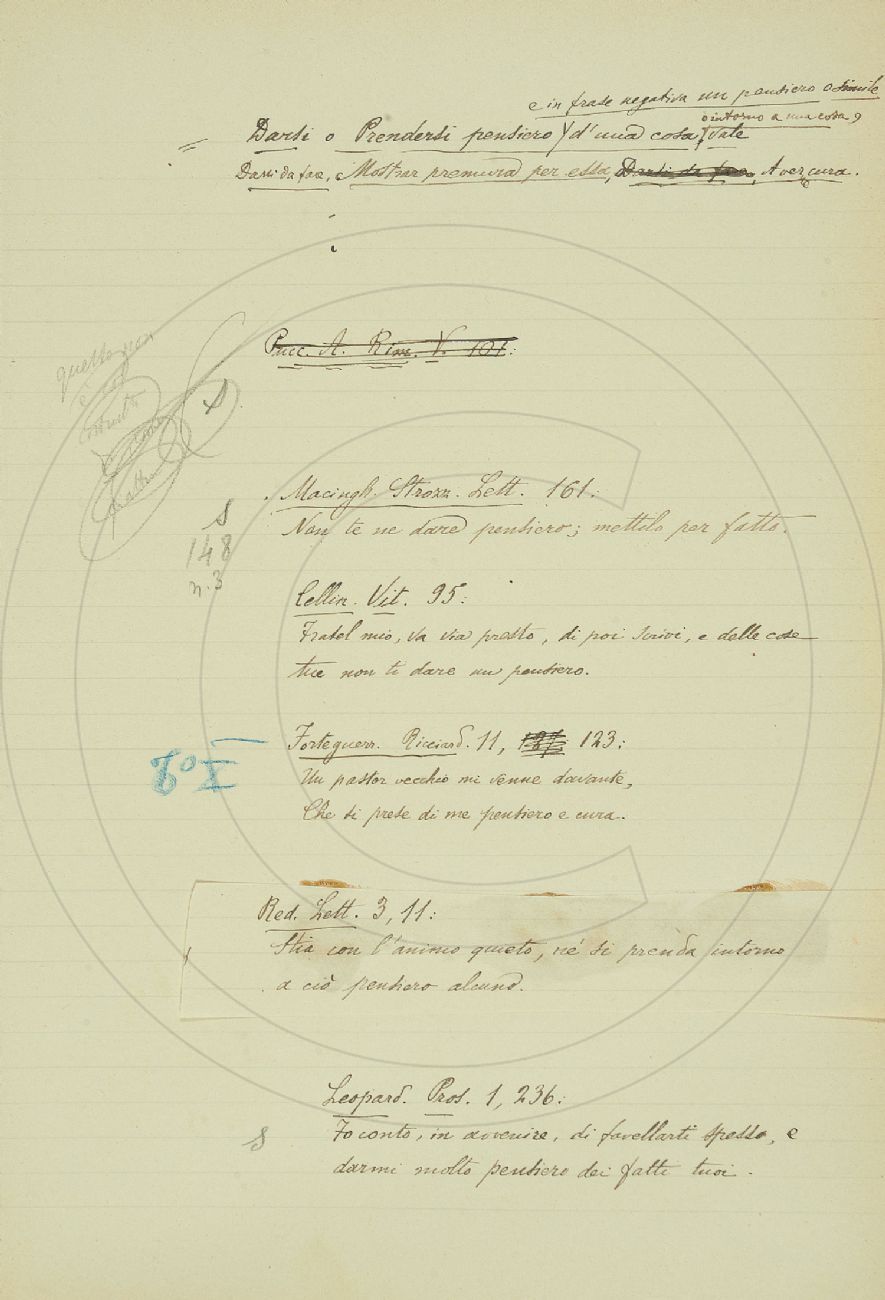 e in frase negativa un pensiero o simile
o intorno a una cosa,
= Darsi o Prendersi pensiero d'una cosa, vale
Darsi da fare, Mostrar premura per essa, Darsi da fare, Aver cura.
Pucc. A. Rim. V. 101:
questo non
è
S
Macingh. Strozz. Lett. 161:
S
Non te ne dare pensiero; mettilo per fatto.
148
n. 3
Cellin. Vit. 95:
Fratel mio, va via presto, di poi scrivi, e delle cose
tue non ti dare un pensiero.
Forteguerr. Ricciard. 11, 123:
Un pastor vecchio mi venne davante,
Che si prese di me pensiero e cura.
Red. Lett. 3, 11:
Stia con l'animo quieto, né si prenda intorno
a ciò pensiero alcuno.
Leopard. Pros. 1, 236:
S
Fo conto, in avvenire, di favellarti spesso, e
darmi molto pensiero dei fatti tuoi.